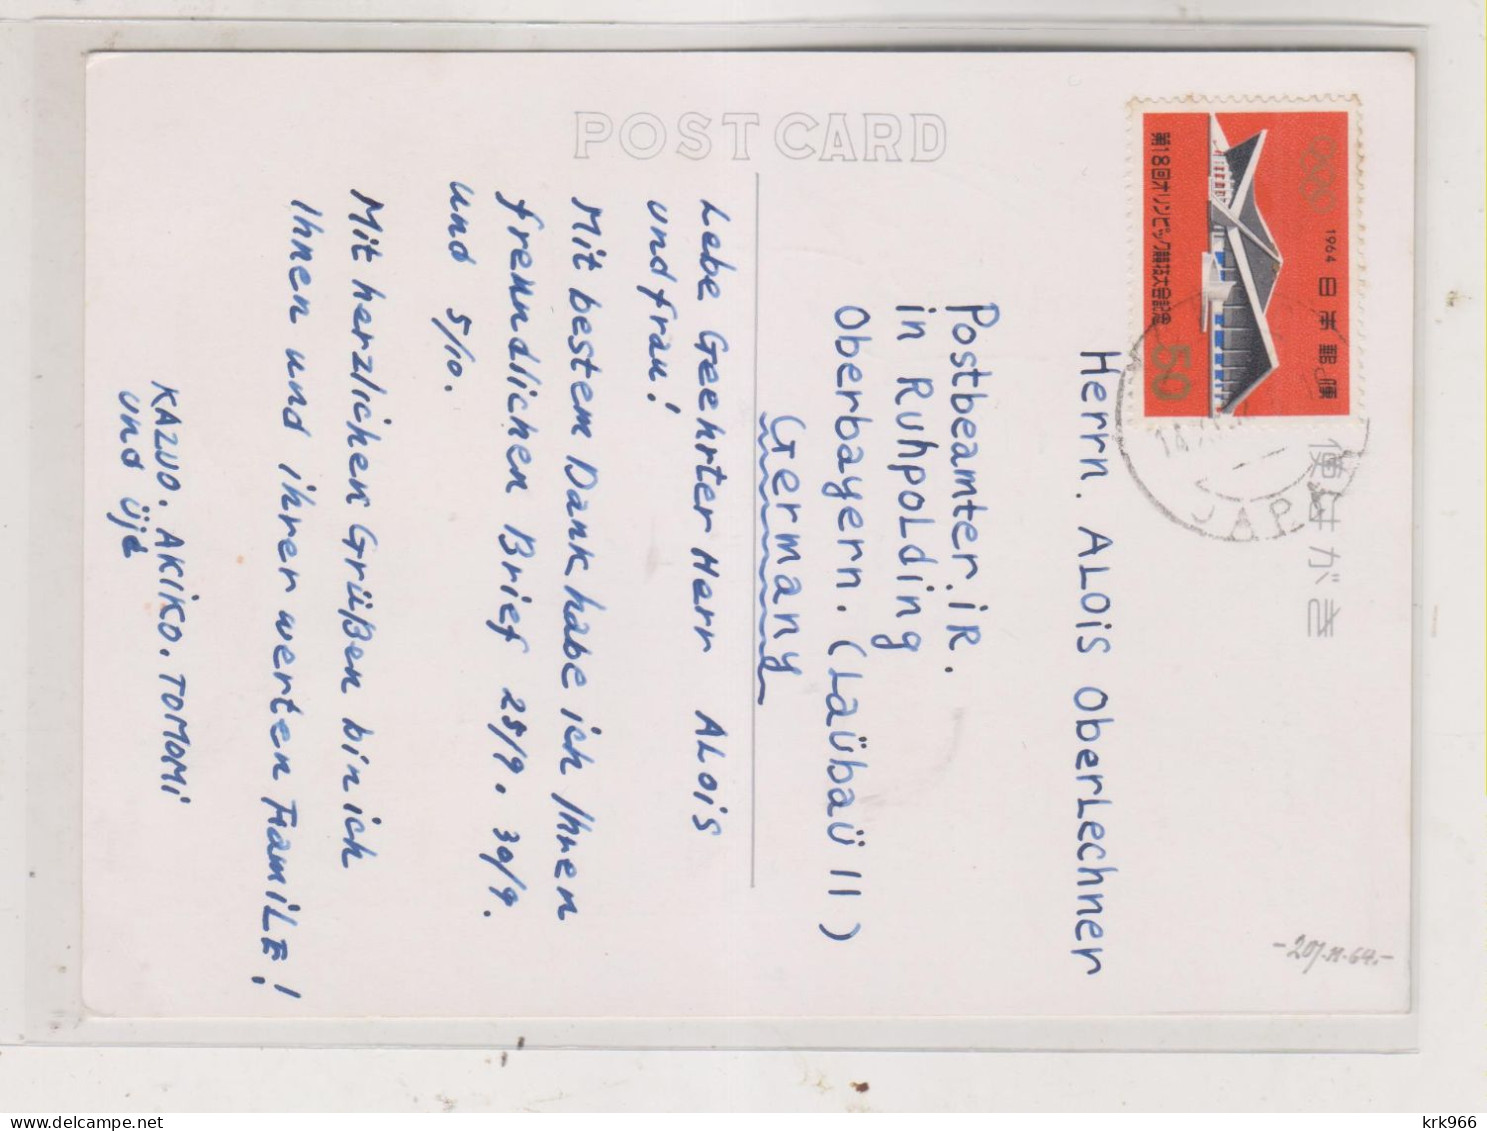 POST CARD
便はがき
第18回オリンピック競技大会記念
50
1964 日本郵便
JAPAN
Herrn. ALOiS OberLechner
Postbeamter.iR.
in RuhpoLding
Oberbayern. (Laübaü 11)
Germany
Lebe Geehrter Herr ALOiS
und frau!
Mit bestem Dank habe ich Ihnen
frenndlichen Brief 25/9. 30/9.
und 5/10.
Mit herzlichen Grüßen bin ich
Ihnen und ihrer werten FamiLE!
KAZUO. AKIKO. TOMOMi
und üjd
-20/.11.64.-
krk966